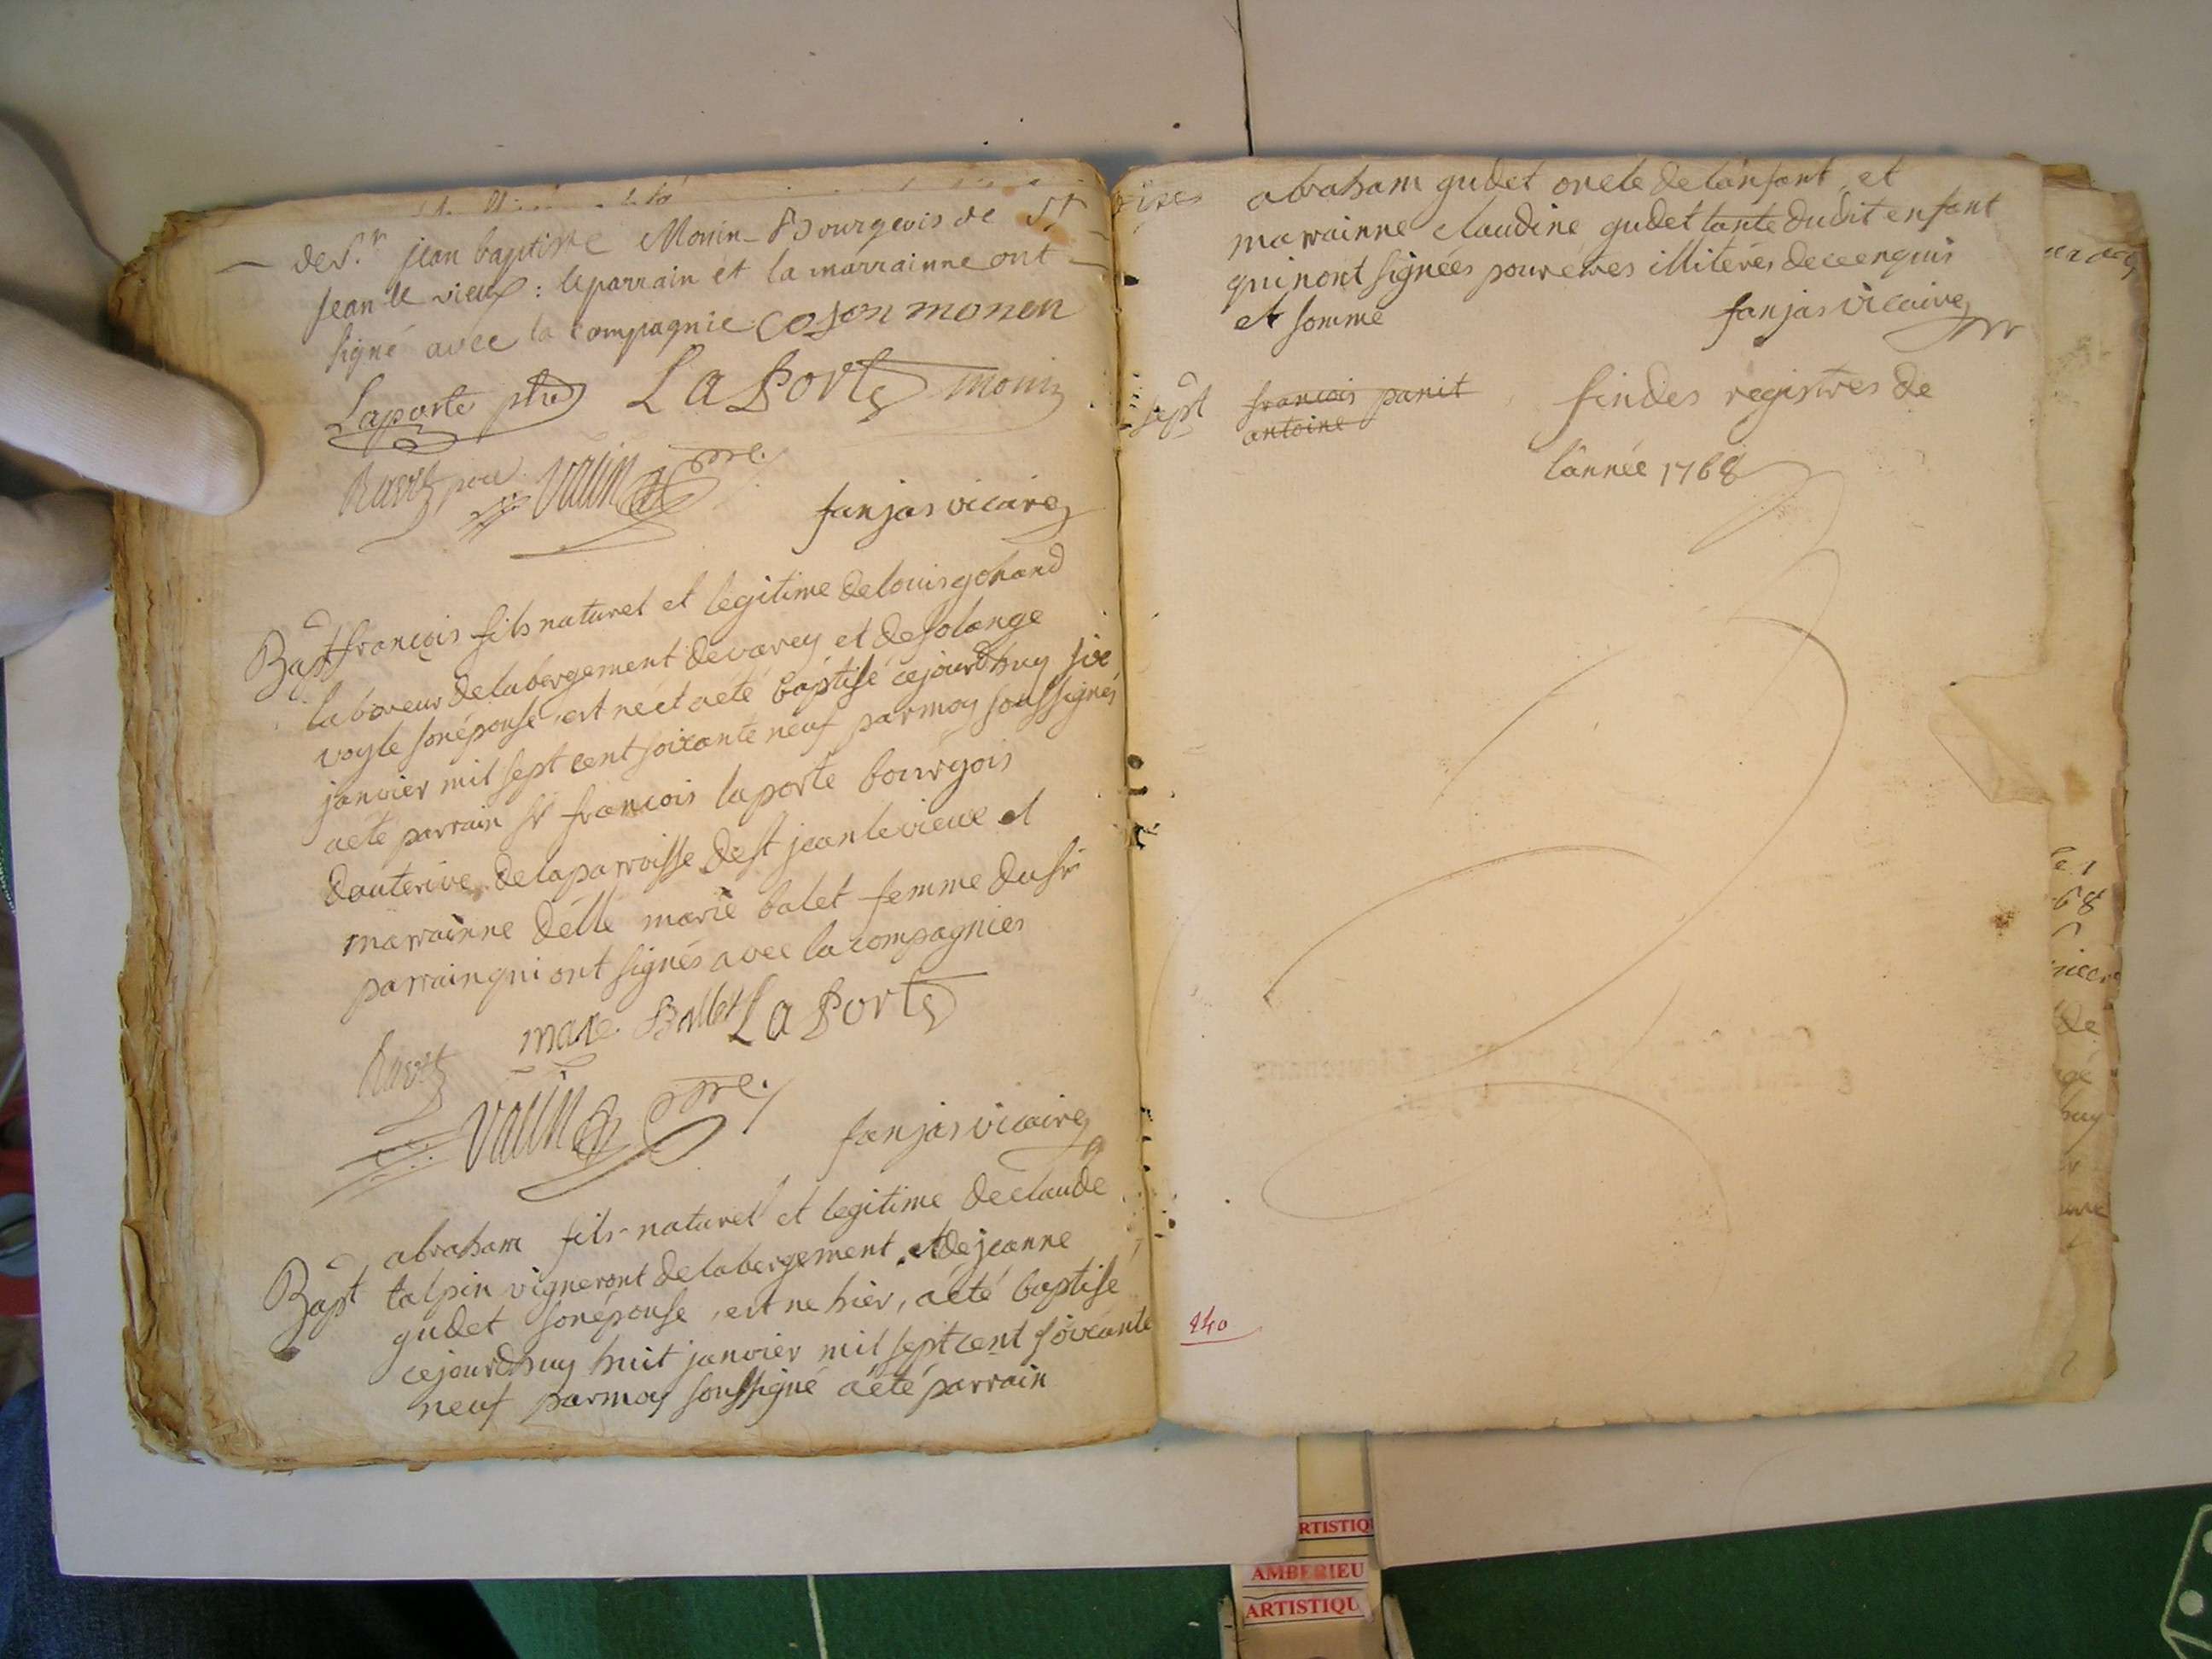 de S.r jean baptiste Monin Bourgeois de St
jean le vieux : le parrain et la marrainne ont
signé avec la compagnie cojon monen
Laporte ptre LaPorte monin
Ravet vaiin
fanjas vicaire
Bapt françois fils naturel et legitime de louis gohand
laboureur de labergement de varey et de solange
voyle son épouse, est né et a eté baptisé cejourdhuy six
janvier mil sept cent soixante neuf par moy soussignés
a eté parrain sr françois laporte bourgois
dauterive de la parroisse de st jean le vieux et
marrainne delle marie balet femme du sr
parrain qui ont signés avec la compagnies
Ravet marie Ballet LaPorte
vaiin
fanjas vicaire
abraham fils naturel et legitime de claude
Bapt talpin vigneront de labergement et de jeanne
gudet son épouse, est ne hier, a été baptisé
cejourdhuy huit janvier mil sept cent soixante
neuf par moy soussigné a été parrain
abraham gudet oncle de lanfant et
marrainne claudine gudet tante dudit enfant
qui nont signées pour étres illiterés de ce enquis
et sommé fanjas vicaire
sept francois panit fin des registres de
antoine
lánnée 1768
140
RTISTIQ
AMBERIEU
ARTISTIQU